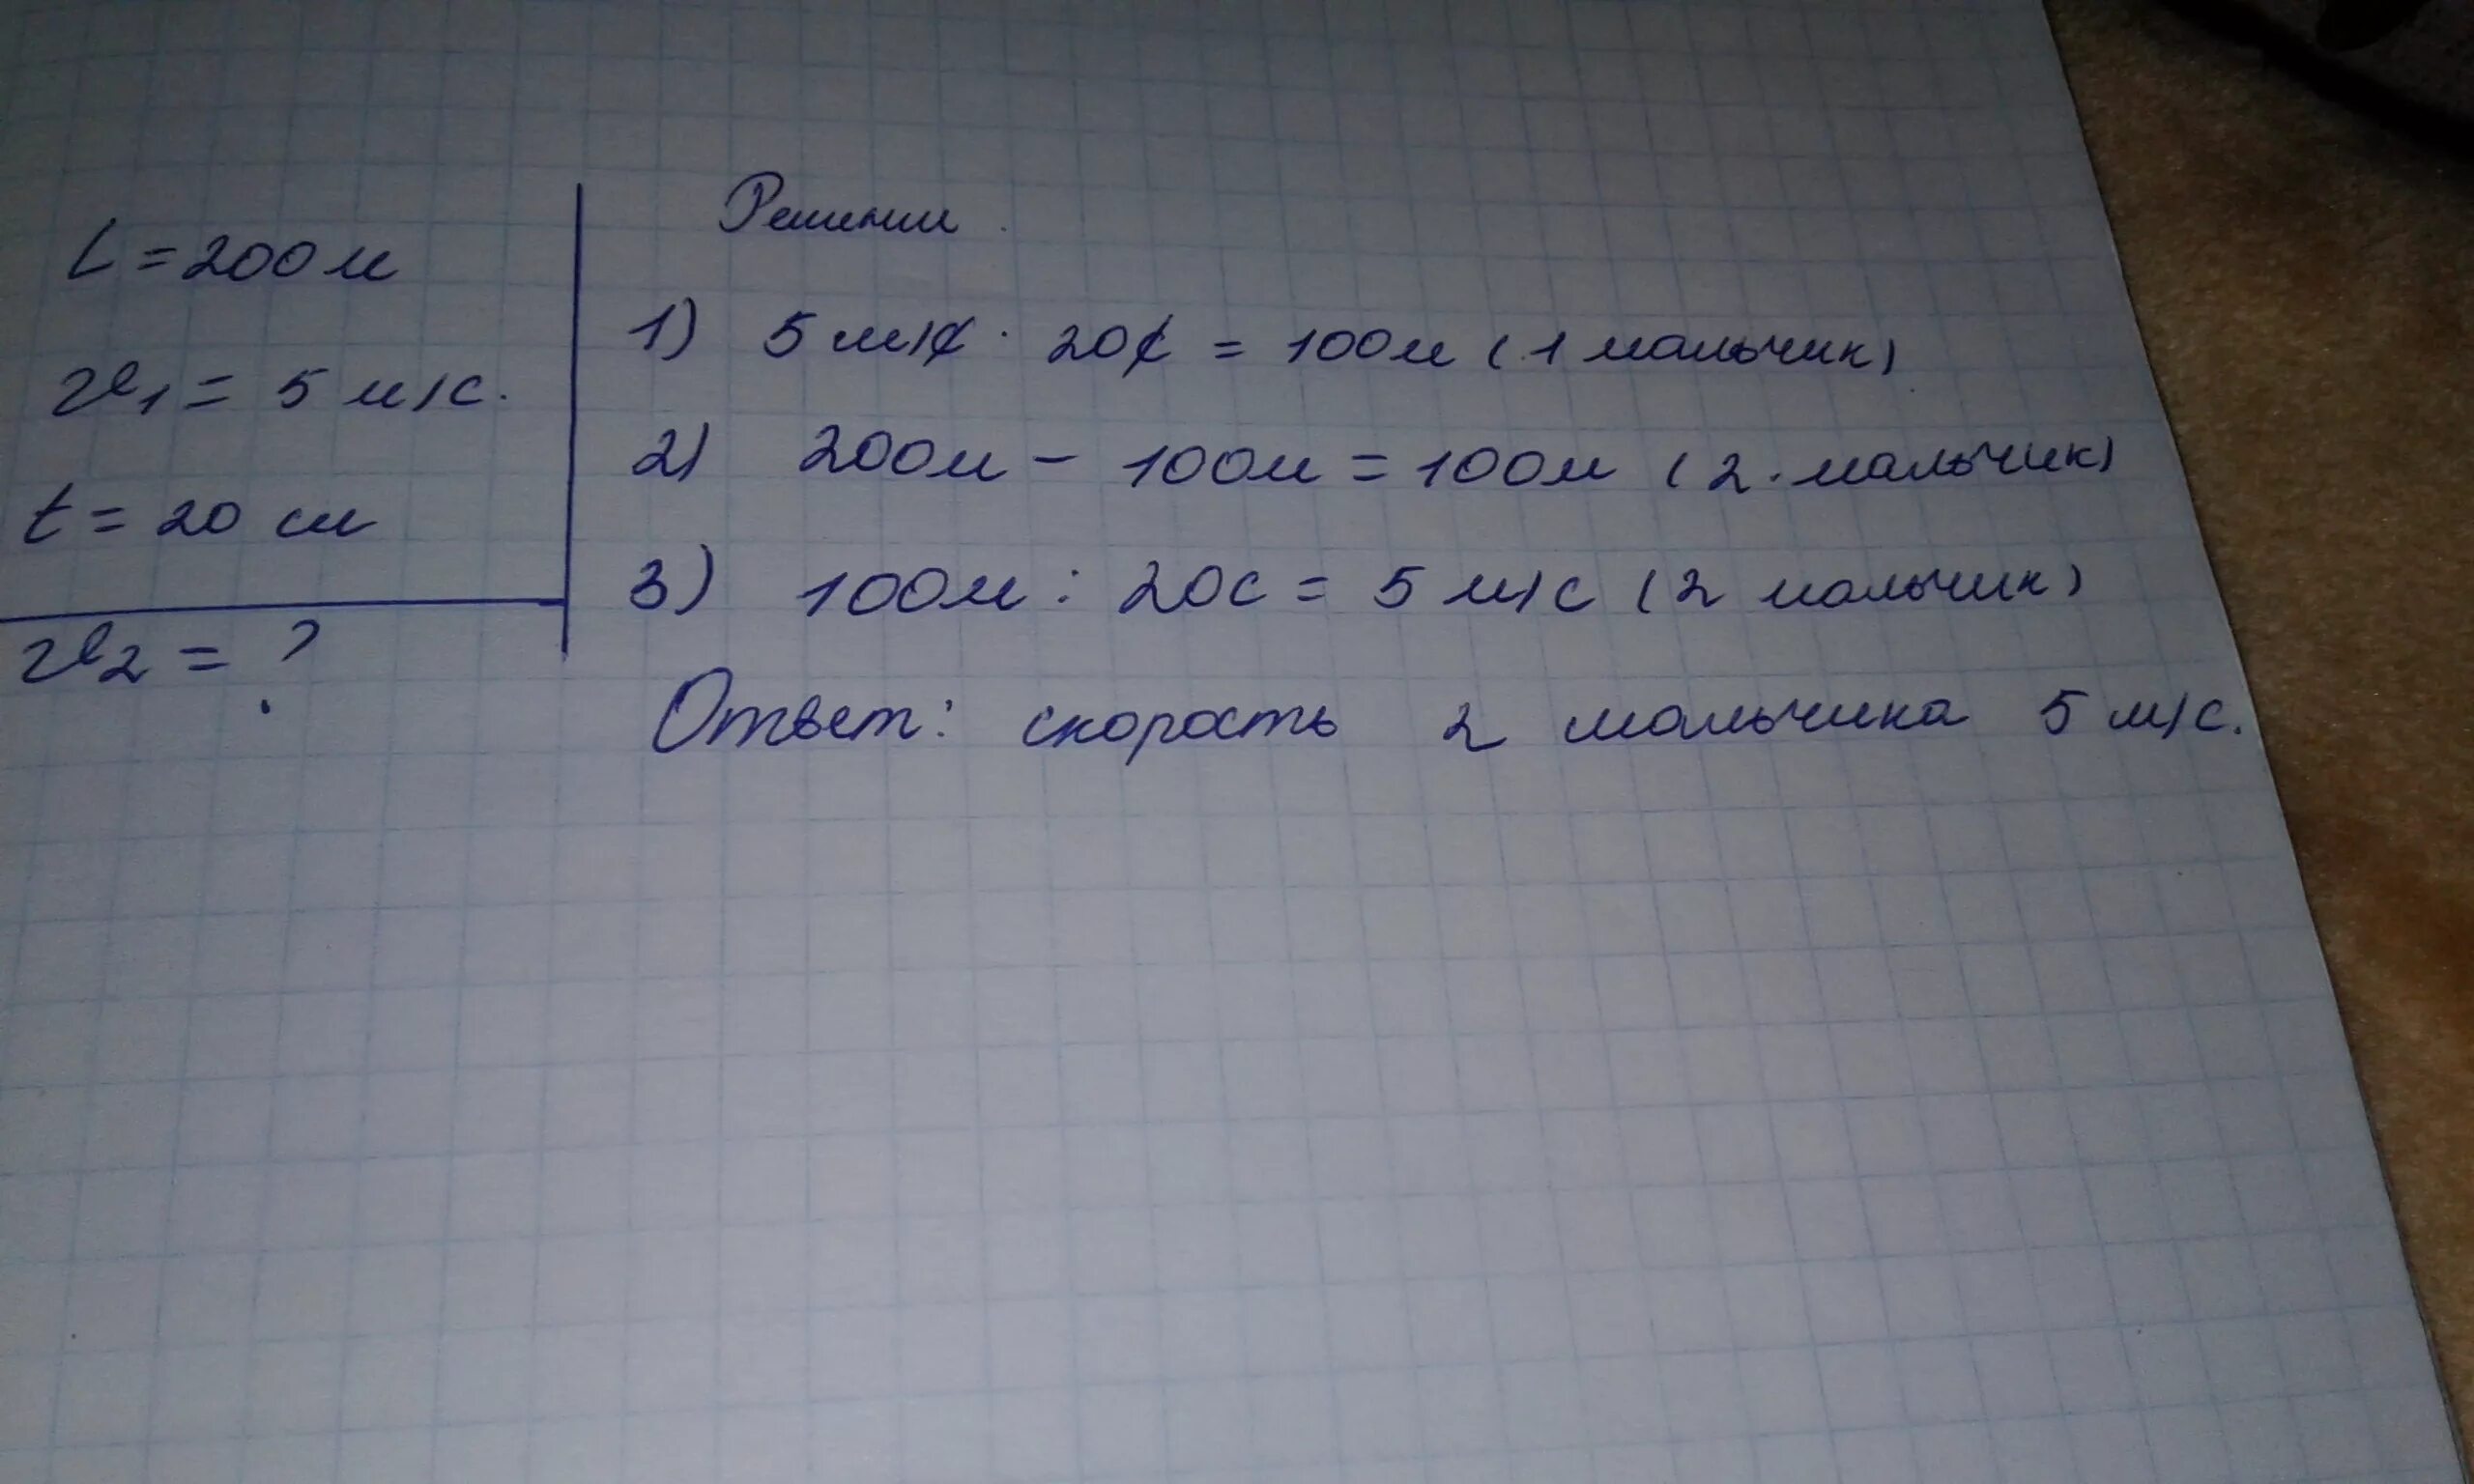 L = 200 м
v₁ = 5 м/с.
t = 20 см
v₂ = ?
Решении
1) 5 м/с · 20с = 100м (1 мальчик)
2) 200м - 100м = 100м (2. мальчик)
3) 100м : 20с = 5 м/с (2 мальчик)
Ответ: скорость 2 мальчика 5 м/с.